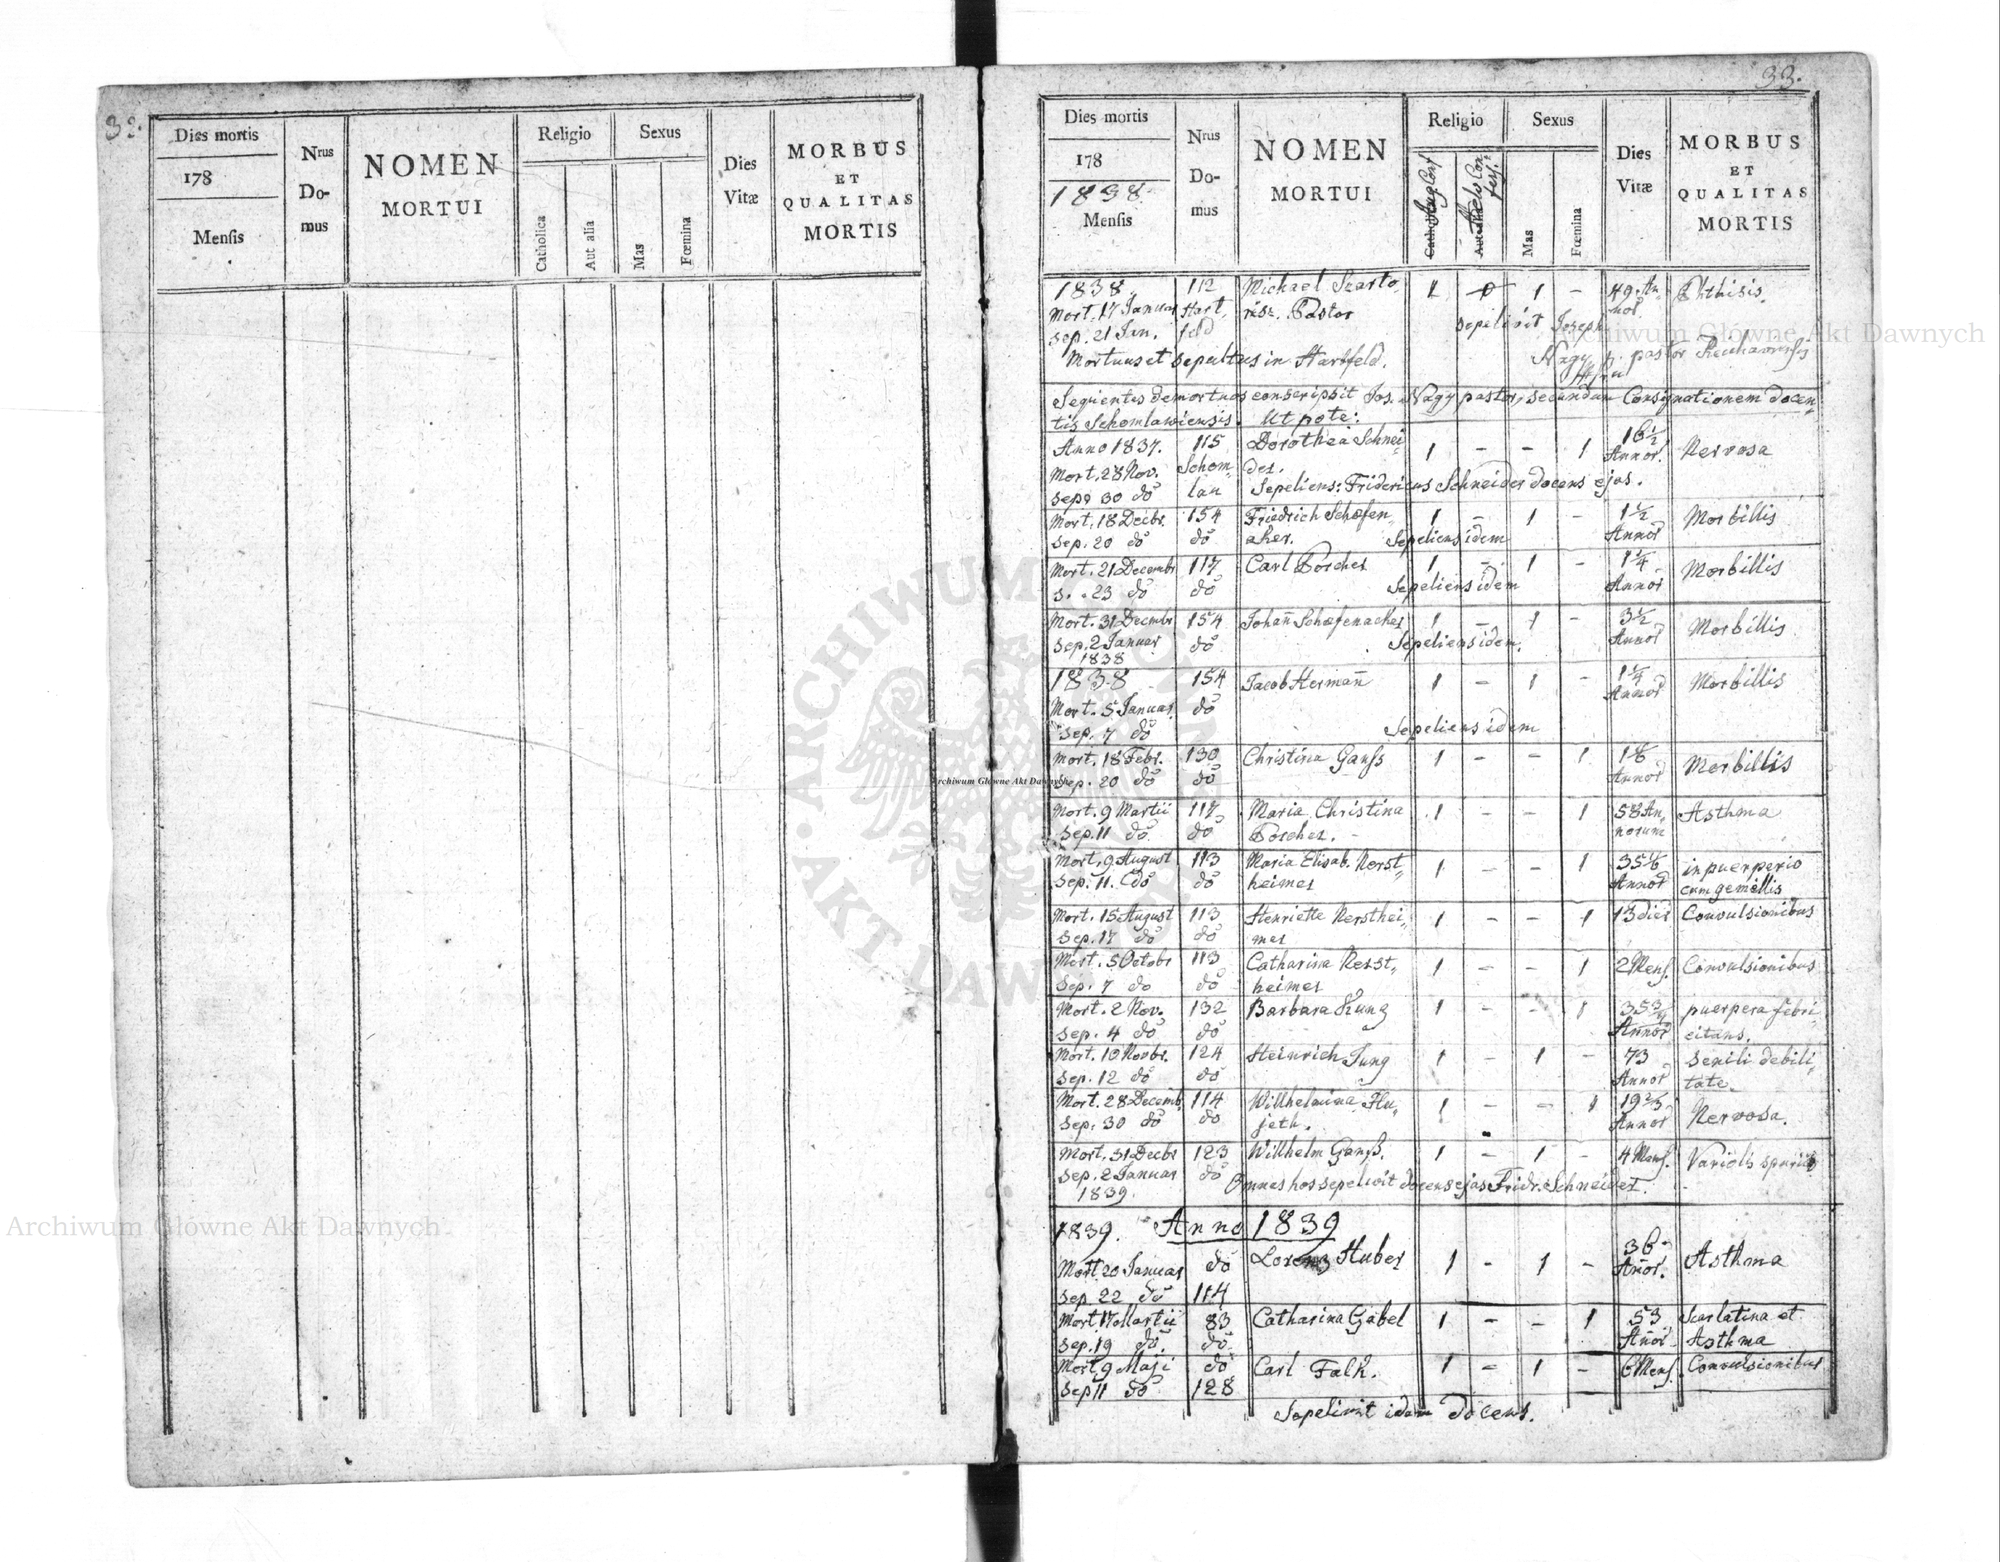 32.
Dies mortis
178
Mensis
Nrus
Do-
mus
NOMEN
MORTUI
Religio
Catholica
Aut alia
Sexus
Mas
Fœmina
Dies
Vitæ
MORBUS
ET
QUALITAS
MORTIS
33.
Dies mortis
178
1838.
Mensis
Nrus
Do-
mus
NOMEN
MORTUI
Religio
Aug Conf
Helv Con
fess:
Sexus
Mas
Fœmina
Dies
Vitæ
MORBUS
ET
QUALITAS
MORTIS
1838 112 Michael Szarto, 1 0 1 - 49 An Phthisis.
Mort. 17 Januar Hart, risz. Pastor nor.
Sep. 21 Jan. feld sepelivit Joseph
Mortuus et sepultus in Hartfeld. Nagy p. pastor
Sequentes demortuos conscripsit Jos. Nagy pastor, secundum Consignationem docen-
tis Schomlawiensis. Ut pote:
Anno 1837. 115 Dorothea Schnei 1 - - 1 16 1/2 Nervosa
Mort. 28 Nov. Schom- der. Annor.
sep. 30 do lau Sepeliens: Fridericus Schneider docens ejas.
Mort. 18 Decbr. 154 Friedrich Schæfen 1 - 1 - 1 1/2 Morbillis
Sep. 20 do do aker. Sepeliens idem Annor
Mort. 21 Decembr 117 Carl Porcher 1 - 1 - 1 1/4 Morbillis
S. 23 do do Sepeliens idem Annor
Mort. 31 Decmbr 154 Johan̄ Schæfenacker 1 - 1 - 3 1/2 Morbillis
Sep. 2 Januar do Sepeliens idem. Annor
1838
1838 154 Jacob Herman̄ 1 - 1 - 1 1/4 Morbillis
Mort. 5 Januar. do Annor
Sep. 7 do Sepeliens idem
Mort. 18 Febr. 130 Christina Ganss 1 - - 1 Morbillis
Sep. 20 do do Annor
Mort. 9 Martii 117 Maria Christina 1 - - 1 58 An, Asthma
Sep. 11 do do Porcher. norum
Mort. 9 August 113 Maria Elisab. Kerst, 1 - - 1 35 in puerperio
Sep. 11. do do heimer Annor cum gemellis
Mort. 15 August 113 Henriette Kersthei, 1 - - 1 13 dier Convulsionibus
Sep. 17 do do mer
Mort. 5 Octobr 113 Catharina Kerst, 1 - - 1 2 Mens. Convulsionibus
Sep. 7 do do heimer
Mort. 2 Nov. 132 Barbara Kung 1 - - 1 35 3/4 puerpera febri,
Sep. 4 do do Annor citans.
Mort. 10 Novbr. 124 Heinrich Jung 1 - 1 - 73 Senili debili,
Sep. 12 do do Annor tate.
Mort. 28 Decemb. 114 Willhelmina Hu, 1 - - 1 19 2/3 Nervosa.
Sep. 30 do do jeth. Annor
Mort. 31 Decbr 123 Willhelm Ganss. 1 - 1 - 4 Mens. Variolis spuriis
Sep. 2 Januar do Omnes hos sepelivit docens ejas Fridr. Schneider.
1839.
1839. Anno 1839
Mort 20 Januar do Lorenz Huber 1 - 1 - 36 Añor. Asthma
Sep 22 do 114
Mort 17 Martii 83 Catharina Gabel 1 - - 1 53 Scarlatina et
Sep. 19 do. do. Añor Asthma
Mort. 9 Maji do Carl Falk. 1 - 1 - 6 Mens. Convulsionibus
Sep 11 do 128
Sepelivit idem docens.
Archiwum Główne Akt Dawnych
Archiwum Główne Akt Dawnych
Archiwum Główne Akt Dawnych